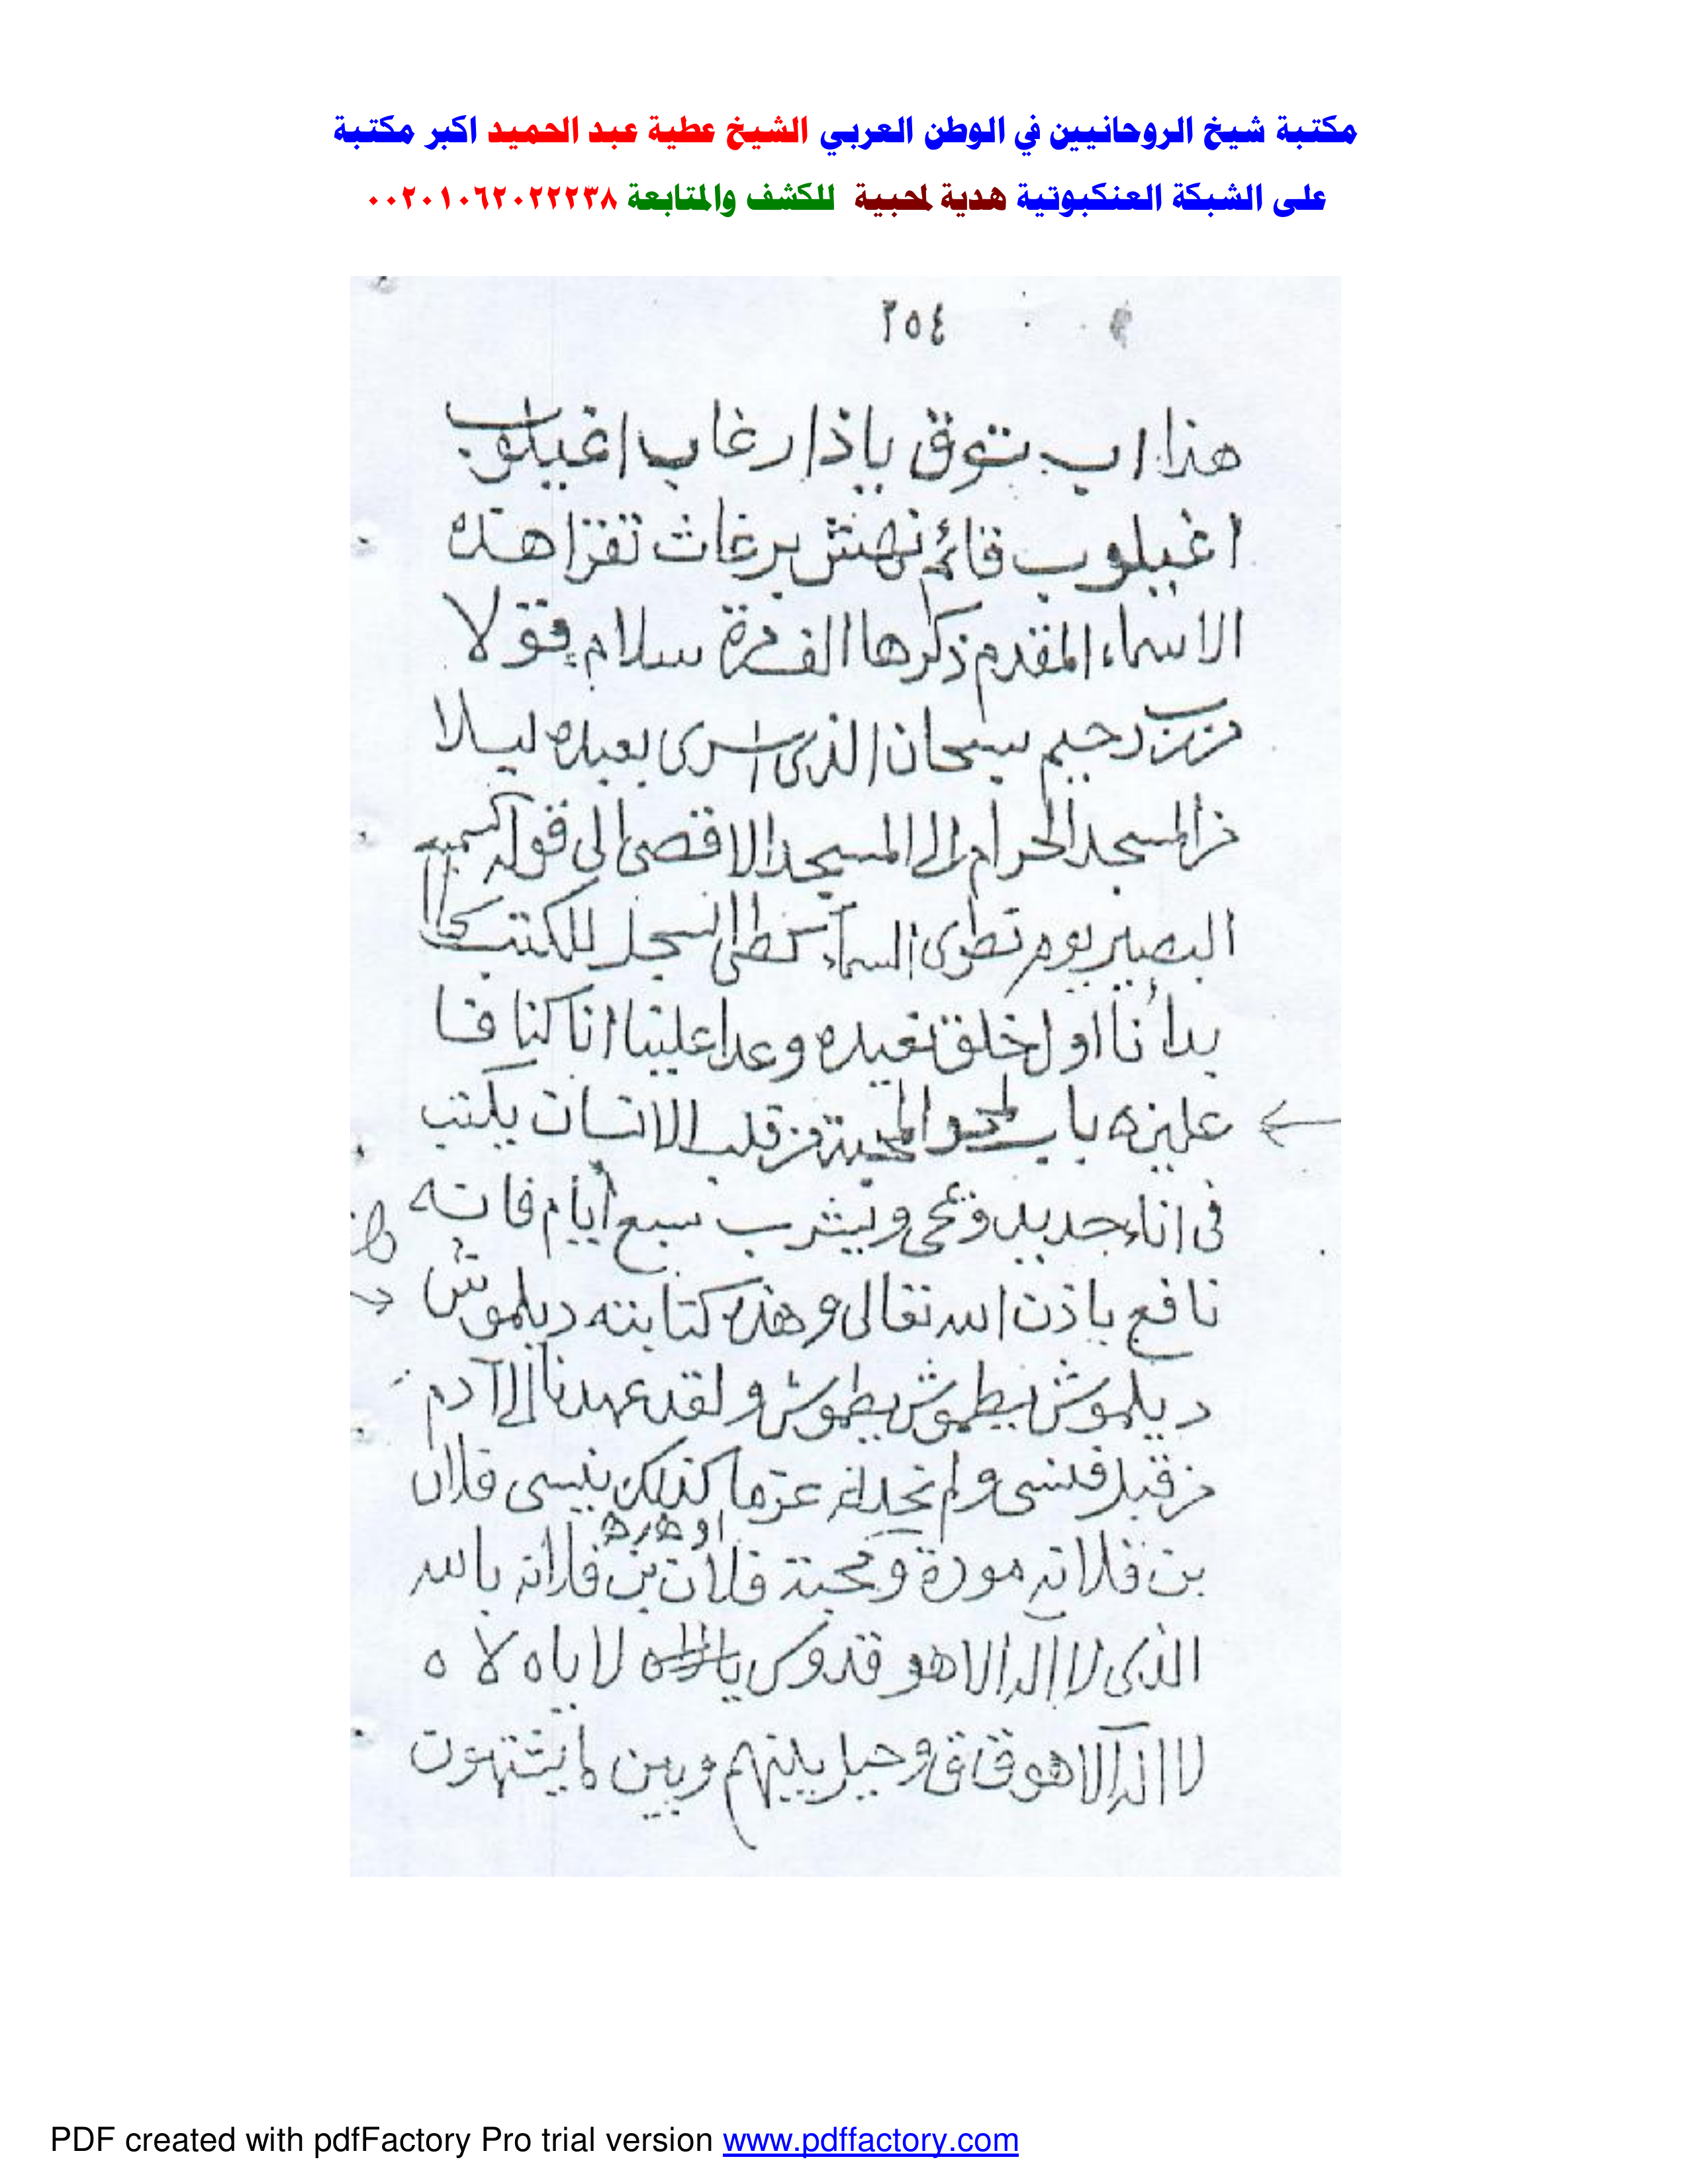 مكتبة شيخ الروحانيين في الوطن العربي الشيخ عطية عبد الحميد اكبر مكتبة
على الشبكة العنكبوتية هدية لمحبية للكشف والمتابعة ٠٠٢٠١٠٦٢٠٢٢٢٣٨
٢٥٤
هذا اب بتوق ياذا رغاب اغيلوب
اغيلوب قائم نهش برغاث تقرا هذه
الاسماء المقدم ذكرها الف مرة سلام قولا
من رب رحيم سبحان الذى اسرى بعبده ليلا
من المسجد الحرام الى المسجد الاقصى الى قوله السميع
البصير يوم نطوى السماء كطى السجل للكتب كما
بدأنا اول خلق نعيده وعدا علينا انا كنا فا
علين ه باب لمحو المحبة من قلب الانسان يكتب
فى اناء جديد ويمحى ويشرب سبع أيام فانه
نافع باذن الله تعالى وهذه كتابته ديلموش
ديلموش بيطموش بيطموش ولقد عهدنا الى آدم
من قبل فنسى ولم نجد له عزما كذلك ينسى فلان
او هذه
بن فلانه مودة ومحبة فلان بن فلانه بالله
الذى لا اله الا هو قدوس لا ياه لا ه
لا اله الا هو ق ق وحيل بينهم وبين ما يشتهون
PDF created with pdfFactory Pro trial version www.pdffactory.com